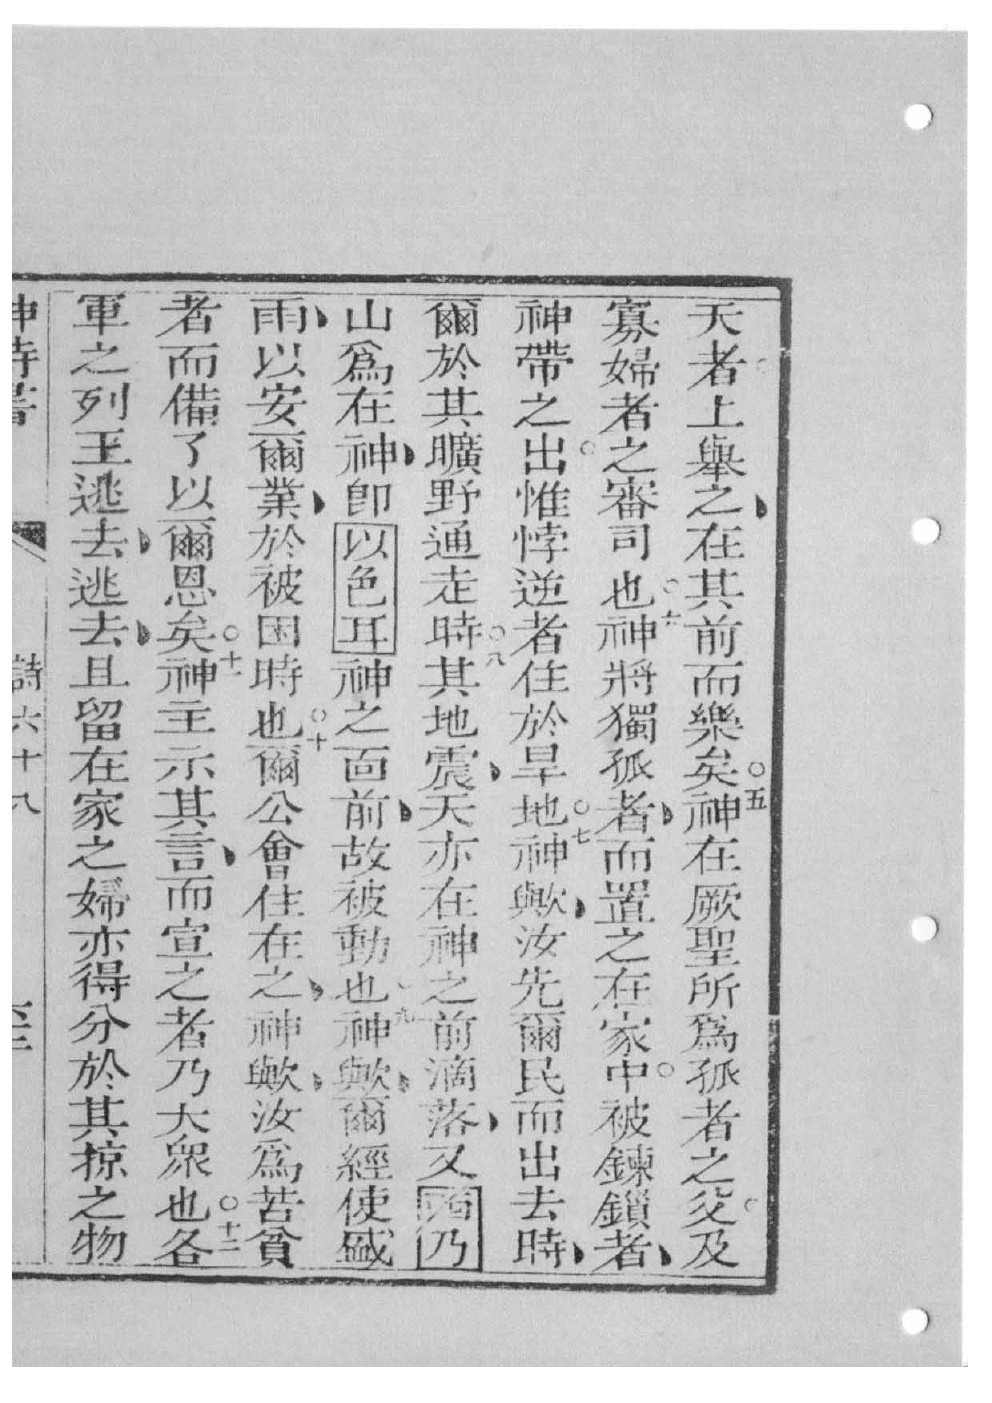 天者上舉之在其前而樂矣○五神在厥聖所爲孤者之父及
寡婦者之審司也○六神將獨孤者而置之在家中○被鍊鎖者
神帶之出○惟悖逆者住於旱地○七神歟汝先爾民而出去時
爾於其曠野通走時○八其地震天亦在神之前滴落又西乃
山爲在神即以色耳神之面前故被動也九神歟爾經使盛
雨以安爾業於被困時也○十爾公會住在之神歟汝爲苦貧
者而備了以爾恩矣○十一神主示其言而宣之者乃大衆也○十二各
軍之列王逃去逃去且留在家之婦亦得分於其掠之物
神詩書 詩六十八